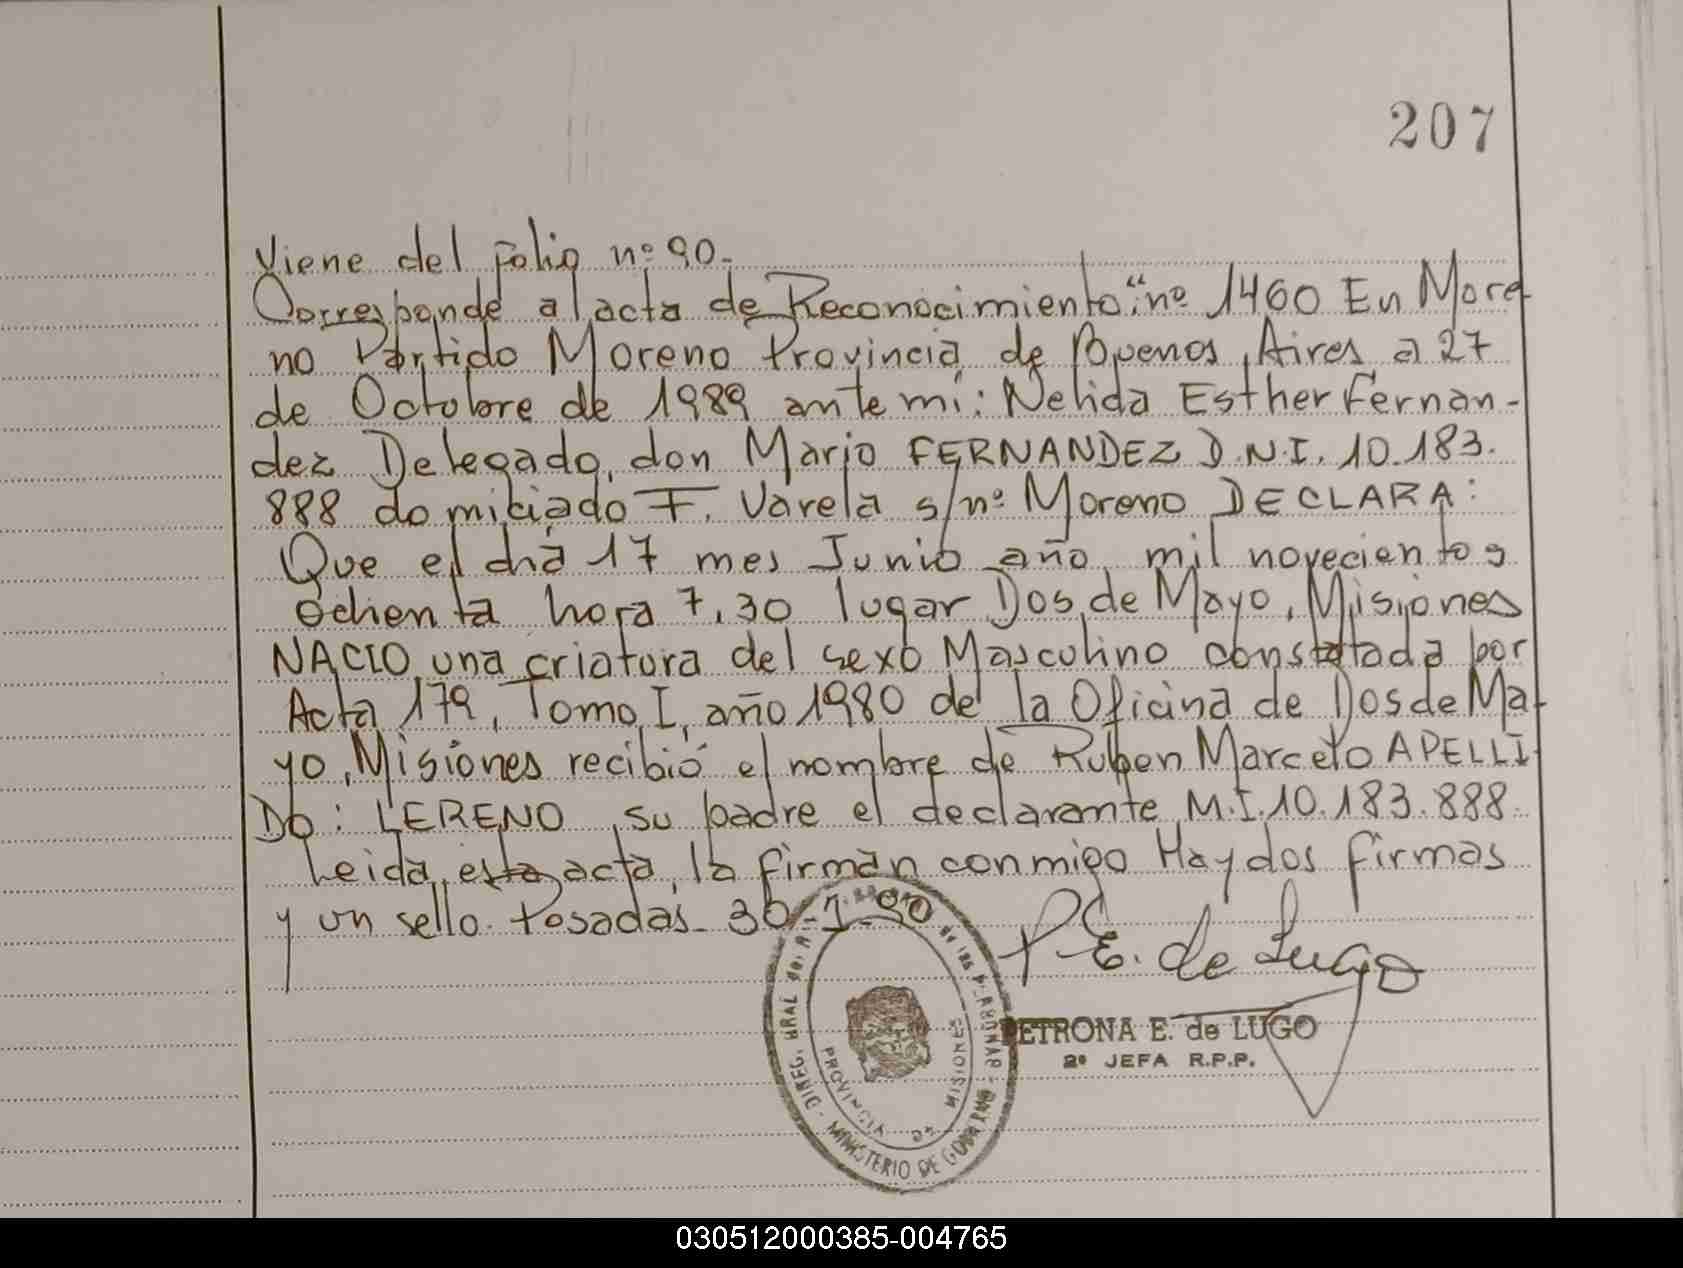 207
Viene del folio nº 90.
Corresponde al acta de Reconocimiento "nº 1460 En More
no Partido Moreno Provincia de Buenos Aires a 27
de Octobre de 1989 ante mi: Nelida Esther Fernan-
dez Delegado, don Mario FERNANDEZ D.N.I. 10.183.
888 domiciado F. Varela s/nº Moreno DECLARA:
Que el dia 17 mes Junio año mil novecientos
ochenta hora 7,30 lugar Dos de Mayo, Misiones
NACIO una criatura del sexo Masculino constatada por
Acta 179, Tomo I, año 1980 de la Oficina de Dos de Ma-
yo, Misiones recibió el nombre de Ruben Marcelo APELLI
DO: LERENO, su padre el declarante M.I. 10.183.888.
Leida esta acta, la firman conmigo Hay dos firmas
y un sello. Posadas 30-1-90
P E. de Lugo
PETRONA E. de LUGO
2º JEFA R.P.P.
DIREC. GRAL de de las PERSONAS
PROVINCIA DE MISIONES
MINISTERIO DE GOBIERNO
030512000385-004765